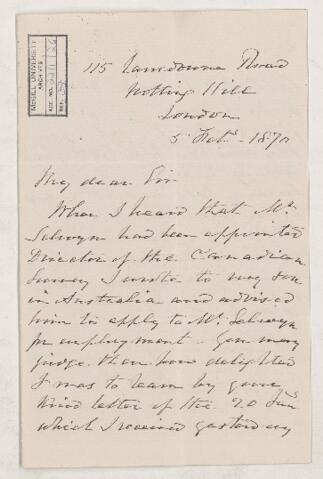 McGILL UNIVERSITY
ARCHIVES
ACC. NO.
REF.
115 Lansdowne Road
Notting Hill
London
5 Feby 1870
My dear Sir
When I heard that Mr
Selwyn had been appointed
Director of the Canadian
Survey I wrote to my son
in Australia and advised
him to apply to Mr Selwyn
for employment - you may
judge then how delighted
I was to learn by your
kind letter of the 20 Jany
which I received yesterday